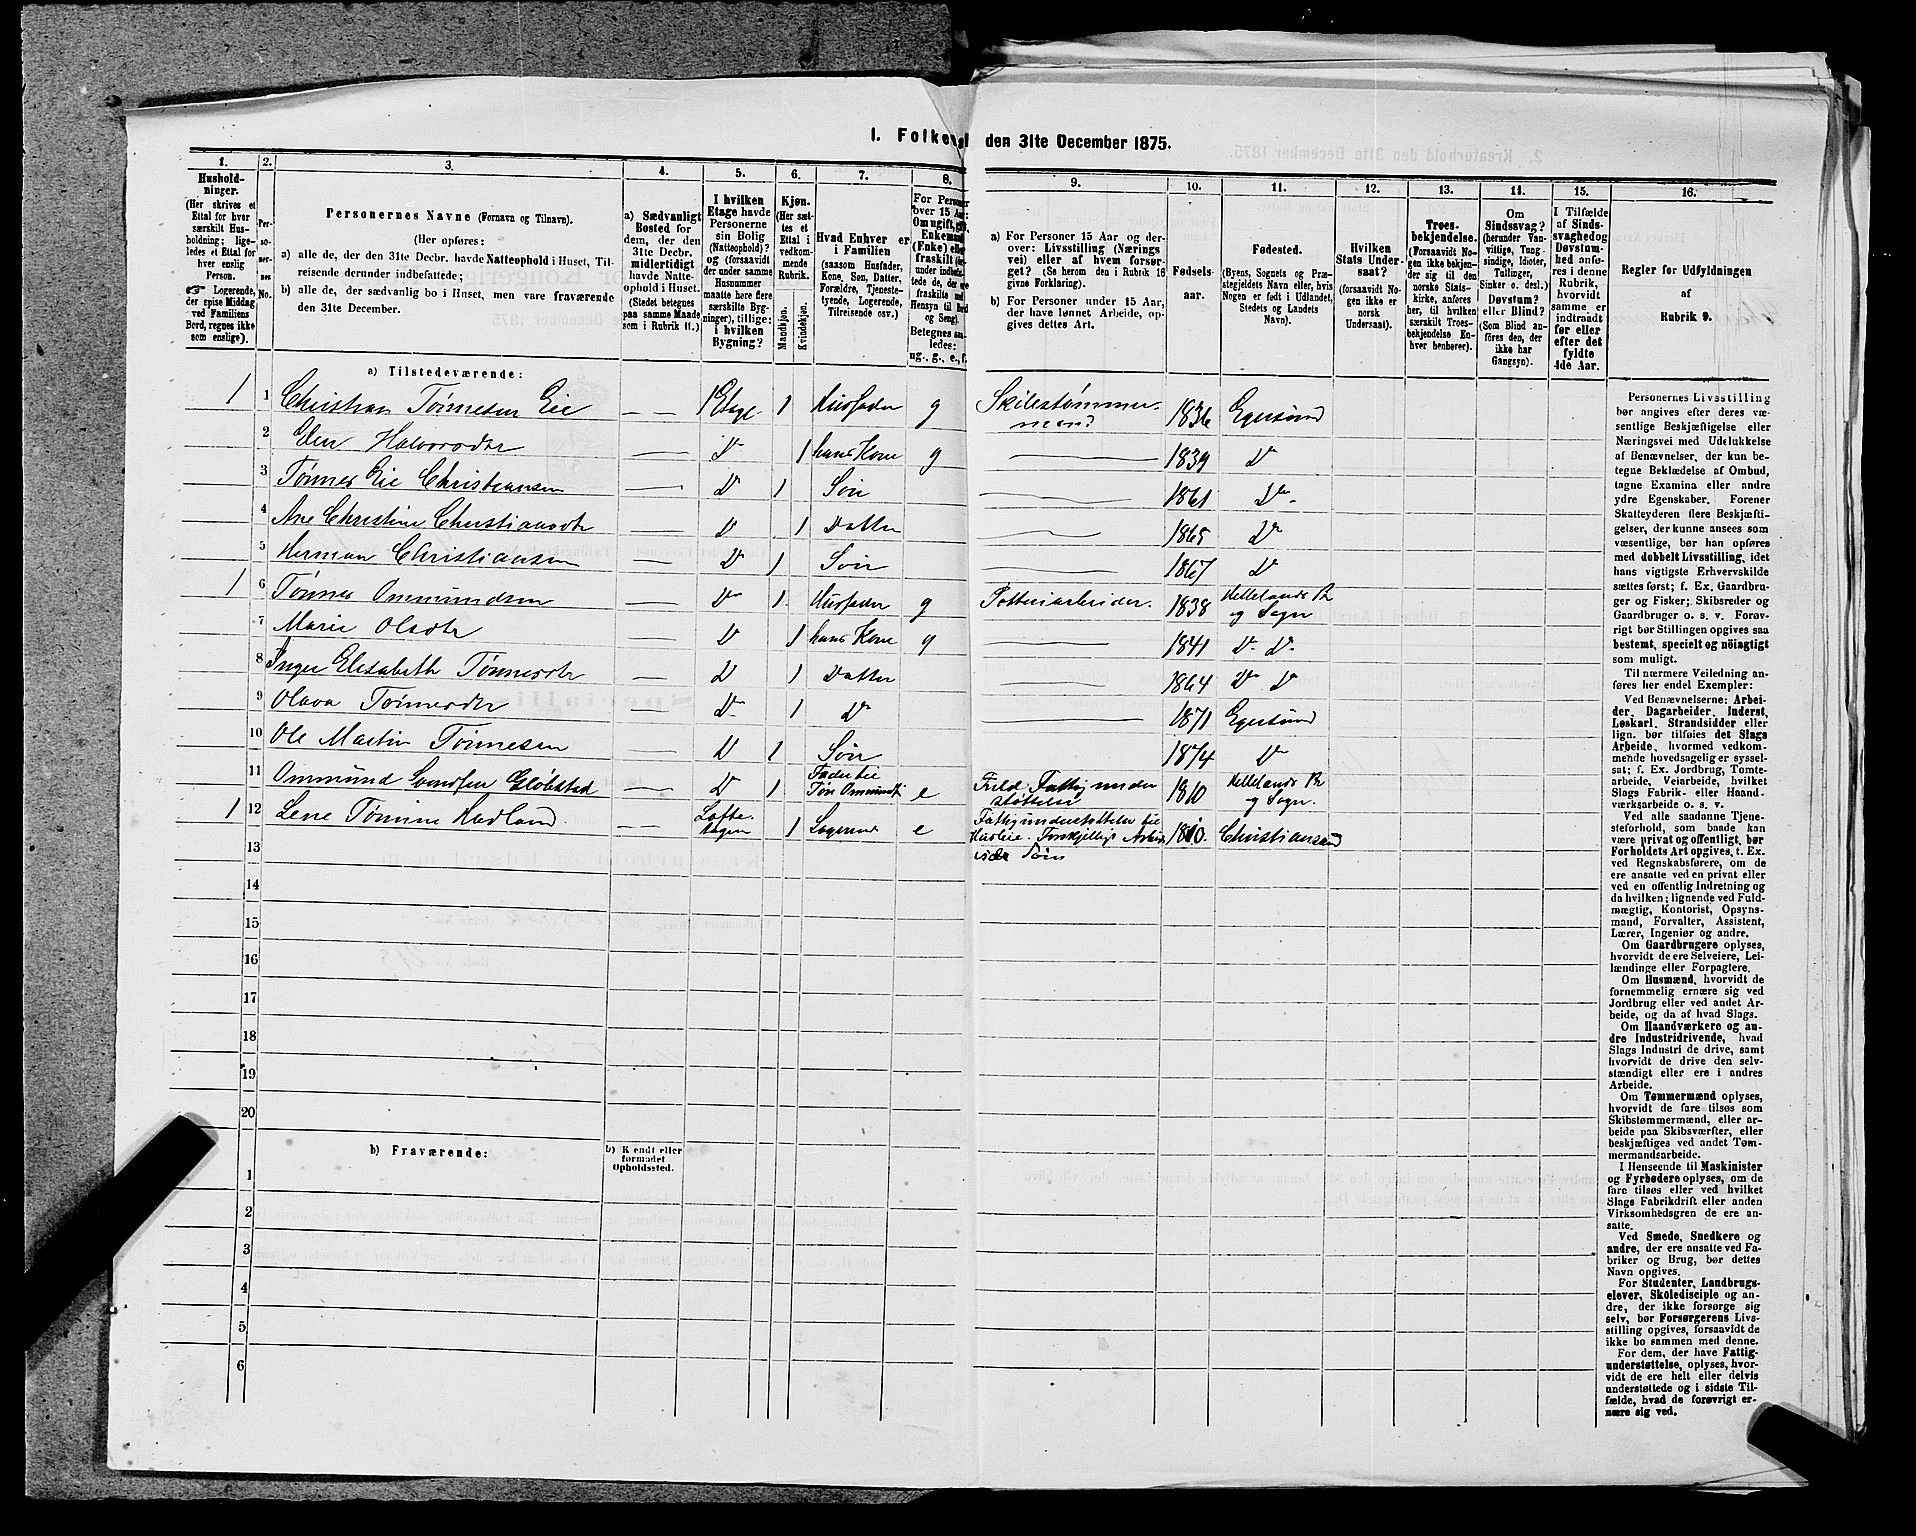 I. Folketæl
den 31te December 1875.
1.
2.
3.
4.
5.
6.
7.
8.
9.
10.
11.
12.
13.
14.
15.
16.
Hushold-
ninger.
(Her skrives et
Ettal for hver
særskilt Hus-
holdning; lige-
ledes et Ettal for
hver enslig
Person.
☞ Logerende,
der spise Middag
ved Familiens
Bord, regnes ikke
som enslige).
Per-
so-
ner-
nes
No.
Personernes Navne (Fornavn og Tilnavn).
(Her opføres:
a) alle de, der den 31te Decbr. havde Natteophold i Huset, Til-
reisende derunder indbefattede;
b) alle de, der sædvanlig bo i Huset, men vare fraværende
den 31te December.
a) Sædvanligt
Bosted for
dem, der den
31te Decbr.
midlertidigt
havde Natte-
ophold i Huset.
(Stedet betegnes
paa samme Maade
som i Rubrik 11.)
I hvilken
Etage havde
Personerne
sin Bolig
(Natteophold)?
og (forsaavidt
der under samme
Husnummer
maatte høre flere
særskilte Byg-
ninger), tillige:
i hvilken
Bygning?
Kjøn.
(Her sæt-
tes et
Ettal i
vedkom-
mende
Rubrik.
Mandkjøn.
Kvindekjøn.
Hvad Enhver er
i Familien
(saasom Husfader,
Kone, Søn, Datter,
Forældre, Tjeneste-
tyende, Logerende,
Tilreisende osv.)
For Personer
over 15 Aar:
Om ugift, gift,
Enkemand
(Enke) eller
fraskilt
Betegnes saa-
ledes:
ug., g., e., f.
a) For Personer 15 Aar og der-
over: Livsstilling (Nærings
vei) eller af hvem forsør-
get? (Se herom den i Rubrik 16
givne Forklaring).
b) For Personer under 15 Aar,
der have lønnet Arbeide, op-
gives dettes Art.
Fødsels-
aar.
Fødested.
(Byens, Sognets og Præ-
stegjeldets Navn eller, hvis
Nogen er født i Udlandet,
Stedets og Landets
Navn).
Hvilken
Stats Under-
saat?
(forsaavidt No-
gen ikke er
norsk
Undersaat).
Troes-
bekjendelse.
(Forsaavidt No-
gen ikke bekjen-
der sig til den
norske Stats-
kirke, anføres
her, til hvilken
særskilt Troes-
bekjendelse En-
hver henhører).
Om
Sindssvag?
(herunder Van-
vittige, Tung-
sindige, Idioter,
Tullinger,
Sinker o. desl.)
Døvstum?
eller Blind?
(Som Blind an-
føres den, der
ikke har
Gangsyn).
I Tilfælde
af Sinds-
svaghed og
Døvstum-
hed anfø-
res i denne
Rubrik,
hvorvidt
samme er
indtraadt
før eller
efter det
fyldte
4de Aar.
Regler for Udfyldningen
af
Rubrik 9.
a) Tilstedeværende:
1 1 Christian Tønnesen Eie — — 1 Etage 1 Husfader g Skibstømmer- 1836 Egersund
mand
2 Elen Halvorsdtr — Do 1 hans Kone g — 1839 Do
3 Tønnes Eie Christiansen — Do 1 Søn — 1861 Do
4 Ane Christine Christiansdtr — Do 1 Datter — 1865 Do
5 Herman Christiansen — Do 1 Søn — 1867 Do
1 6 Tønnes Ommundsen — Do 1 Husfader g Potteriarbeider. 1838 Hellelands Pr
og Sogn
7 Marie Olsdtr — Do 1 hans Kone g — 1841 Do Do
8 Inger Elisabeth Tønnesdtr — Do 1 Datter — 1864 Do Do
9 Olava Tønnesdtr — Do 1 Do — 1871 Egersund
10 Ole Martin Tønnesen — Do 1 Søn 1874 Do
11 Ommund Svendsen — Do 1 Fader til
Tøn Ommunds e Fuld Fattigunder 1810 Hellelands Pr
støttelse og Sogn.
1 12 Lene Tomine Hadland — — Lofte- 1 Logerende e Fattigunderstøttelse til 1810. Christianssand
Husleie. Forskjelligt
13
14
15
16
17
18
19
20
b) Fraværende:
b) Kendt eller
formodet
Opholdssted.
1
2
3
4
5
6
Personernes Livsstilling
bør angives efter deres væ-
sentlige Beskjæftigelse eller
Næringsvei med Udelukkelse
af Benævnelser, der kun be-
tegne Beklædelse af Ombud,
tagne Examina eller andre
ydre Egenskaber. Forener
Skatteyderen flere Beskjæfti-
gelser, der kunne ansees som
væsentlige, bør han opføres
med dobbelt Livsstilling, idet
hans vigtigste Erhvervskilde
sættes først; f. Ex. Gaardbru-
ger og Fisker; Skibsreder og
Gaardbruger o. s. v. Forøv-
rigt bør Stillingen opgives saa
bestemt, specielt og nöiagtigt
som muligt.
Til nærmere Veiledning an-
føres her endel Exempler:
Ved Benævnelserne: Arbei-
der, Dagarbeider, Inderst,
Løskarl, Strandsidder eller
lign. bør tilføies det Slags
Arbeide, hvormed vedkom-
mende hovedsagelig er syssel-
sat; f. Ex. Jordbrug, Tomte-
arbeide, Veiarbeide, hvilket
Slags Fabrik- eller Haand-
værksarbeide o. s. v.
Ved alle saadanne Tjene-
steforhold, som baade kan
være privat og offentligt, bør
Forholdets Art opgives, t. Ex.
ved Regnskabsførere, om de
ere ansatte ved en privat eller
ved en offentlig Indretning og
da hvilken; lignende ved Fuld-
mægtig, Kontorist, Opsyns-
mand, Forvalter, Assistent,
Lærer, Ingeniør og andre.
Om Gaardbrugere oplyses,
hvorvidt de ere Selveiere, Lei-
lændinge eller Forpagtere.
Om Husmænd, hvorvidt de
fornemmelig ernære sig ved
Jordbrug eller ved andet Ar-
beide, og da af hvad Slags.
Om Haandværkere og an-
dre Industridrivende, hvad
Slags Industri de drive, samt
hvorvidt de drive den selv-
stændigt eller ere i andres
Arbeide.
Om Tømmermænd oplyses,
hvorvidt de fare tilsøs som
Skibstømmermænd, eller ar-
beide paa Skibsværfter, eller
beskjæftiges ved andet Tøm-
mermandsarbeide.
I Henseende til Maskinister
og Fyrbødere oplyses, om de
fare tilsøs eller ved hvilket
Slags Fabrikdrift eller anden
Virksomhedsgren de ere an-
satte.
Ved Smede, Snedkere og
andre, der ere ansatte ved Fa-
briker og Brug, bør dettes
Navn opgives.
For Studenter, Landbrugs-
elever, Skoledisciple og an-
dre, der ikke forsørge sig
selv, bør Forsørgerens Livs-
stilling opgives, forsaavidt de
ikke bo sammen med denne.
For dem, der have Fattig-
understøttelse, oplyses, hvor-
vidt de ere helt eller delvis
understøttede og i sidste Til-
fælde, hvad de forøvrigt er-
nære sig ved.